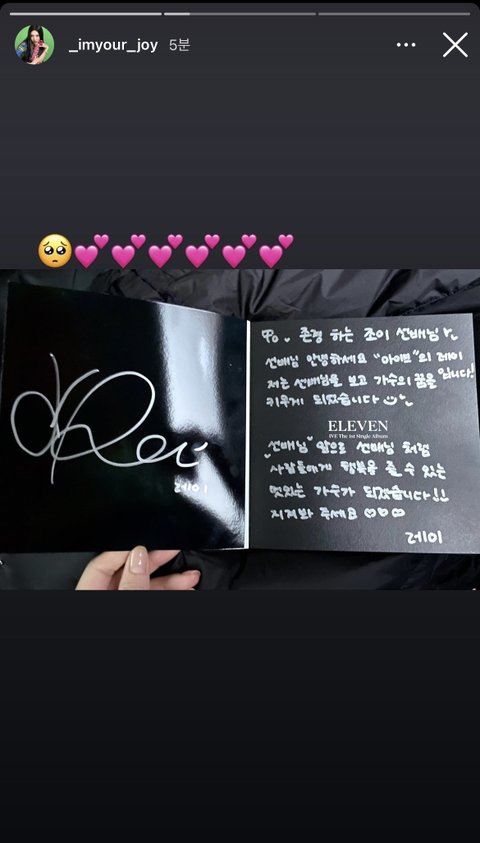 _imyour_joy 5분
🥺💕💕💕💕💕💕
To. 존경 하는 조이 선배님
선배님 안녕하세요 "아이브"의 레이 입니다!
저는 선배님을 보고 가수의 꿈을
키우게 되었습니다
ELEVEN
IVE The 1st Single Album
선배님 앞으로 선배님 처럼
사람들에게 행복을 줄 수 있는
멋있는 가수가 되겠습니다!!
지켜봐 주세요 ♡♡♡
레이
Rei
레이